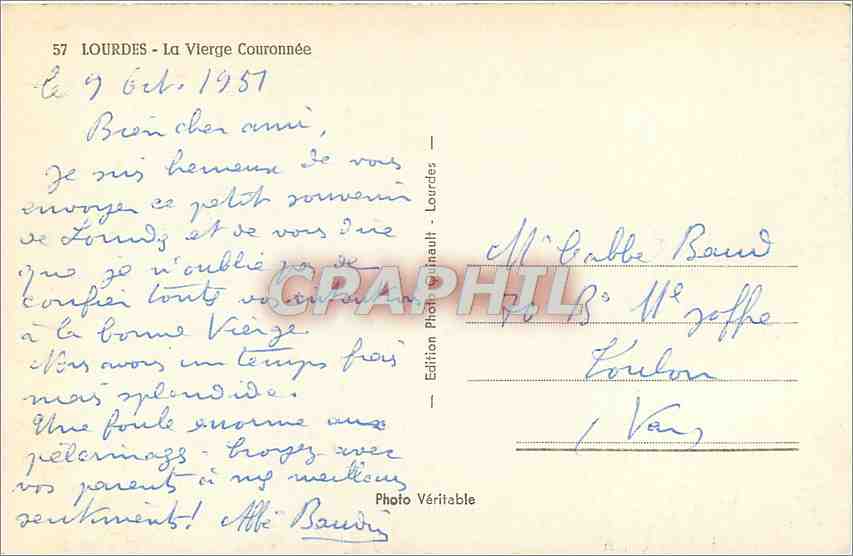 57 LOURDES - La Vierge Couronnée
le 9 Oct. 1951
Bien cher ami,
Je suis heureux de vous
envoyer ce petit souvenir
de Lourdes et de vous dire
que je n'oublie pas de
confier toute vos intentions
à la bonne Vierge.
Nous avons un temps frais
mais splendide.
Une foule enorme aux
pélerinages - Croyez avec
vos parents à mes meilleurs
sentiments! Abbé Baudin
CPAPHIL
— Edition Photo Guinault - Lourdes —
Mr l'abbé Baud
70 Bd Mal Joffre
Toulon
(Var)
Photo Véritable